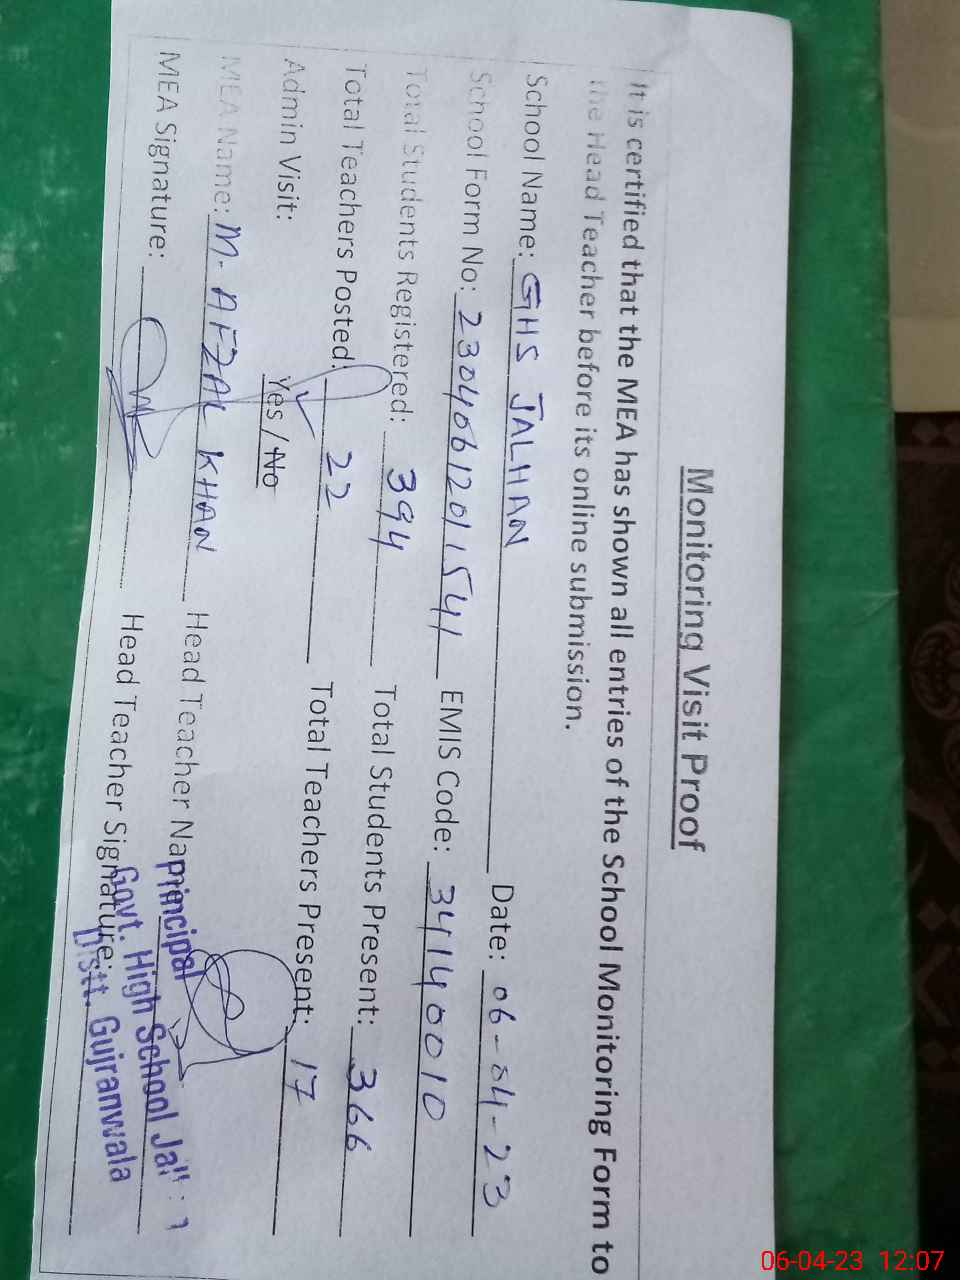 Monitoring Visit Proof
It is certified that the MEA has shown all entries of the School Monitoring Form to
the Head Teacher before its online submission.
School Name: GHS JALHAN Date: 06-04-23
School Form No: 2304061201541 EMIS Code: 34140010
Total Students Registered: 394 Total Students Present: 366
Total Teachers Posted: 22 Total Teachers Present: 17
Admin Visit: Yes / No
MEA Name: M. AFZAL KHAN Head Teacher Na
MEA Signature: Head Teacher Signature:
Principal
Govt. High School
Distt. Gujranwala
06-04-23 12:07